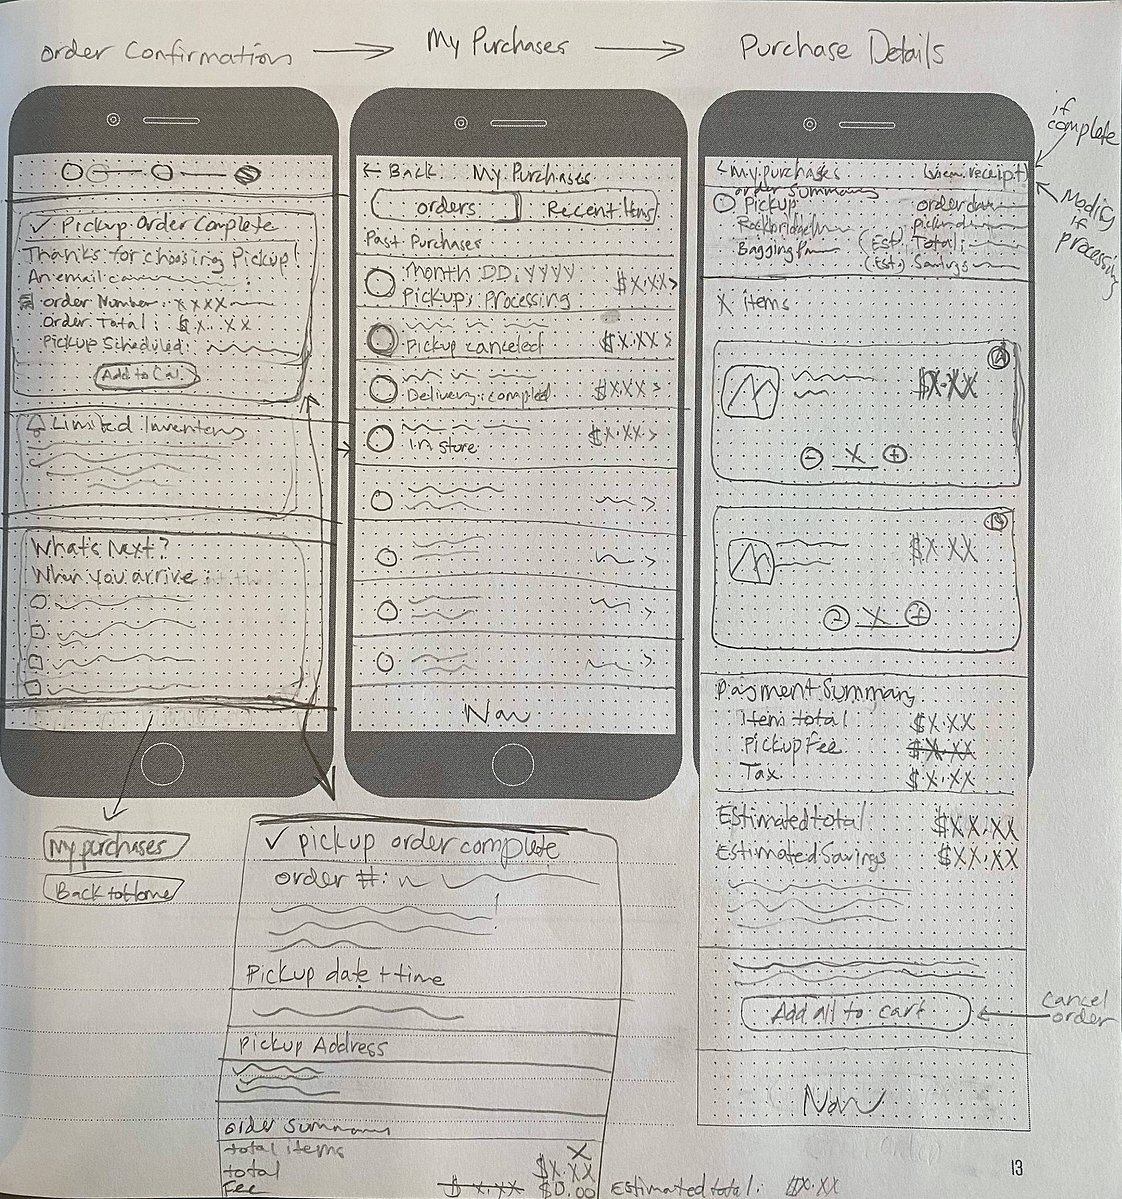 Order Confirmation → My Purchases → Purchase Details
✓ Pickup Order Complete
Thanks for choosing Pickup!
An email
Order Number: XXXX
Order Total: $X.XX
Pickup Scheduled:
Add to Cal
Limited Inventory
What's Next?
When you arrive:
My purchases
Back to Home
← Back My Purchases
orders Recent Items
Past Purchases
Month DD, YYYY
Pickup, Processing $X.XX >
Pickup canceled $X.XX >
Delivery, completed $X.XX >
In store $X.XX >
Nav
✓ pickup order complete
order #:
Pickup date + time
Pickup Address
order summary
total items X
total $X.XX
Fee $X.XX $0.00
Estimated total: $X.XX
if complete
Modify if processing
< my purchases (view receipt)
order summary
Pickup order
(Est.) Total:
(Est.) Savings
X items
$X.XX
- X +
$X.XX
X +
Payment Summary
Item total $X.XX
Pickup Fee $X.XX
Tax $X.XX
Estimated total $XX.XX
Estimated Savings $XX.XX
Add all to cart ← cancel order
Nav
13